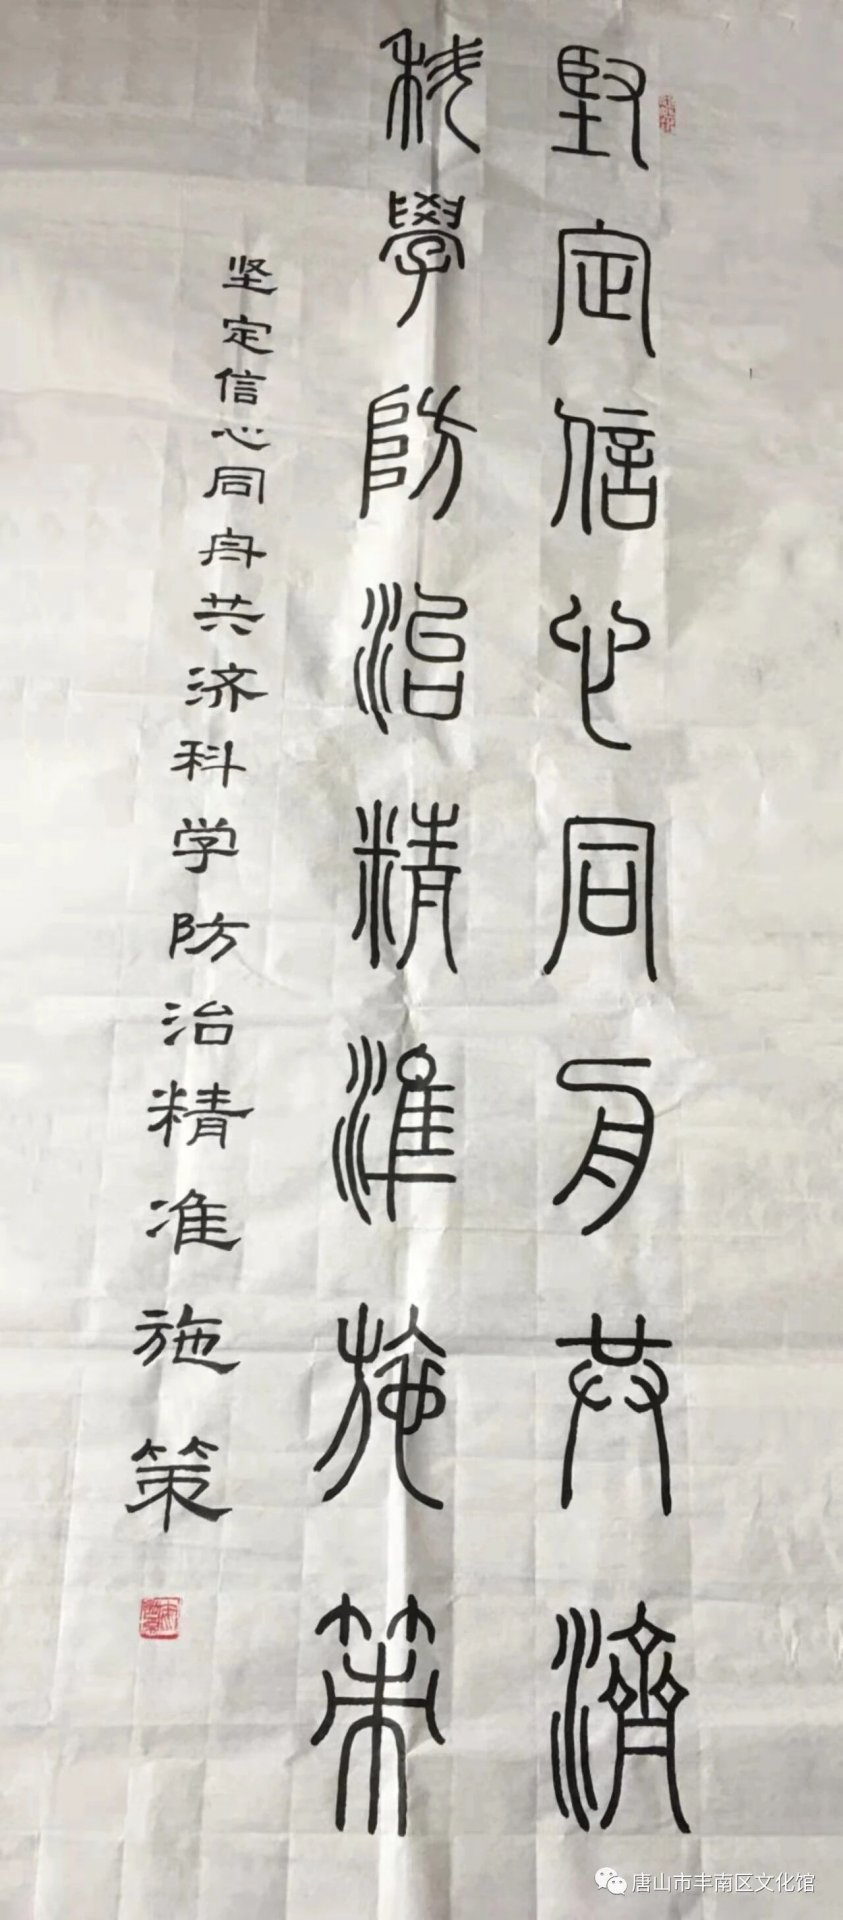 堅定信心同舟共濟
科學防治精準施策
坚定信心同舟共济科学防治精准施策
唐山市丰南区文化馆